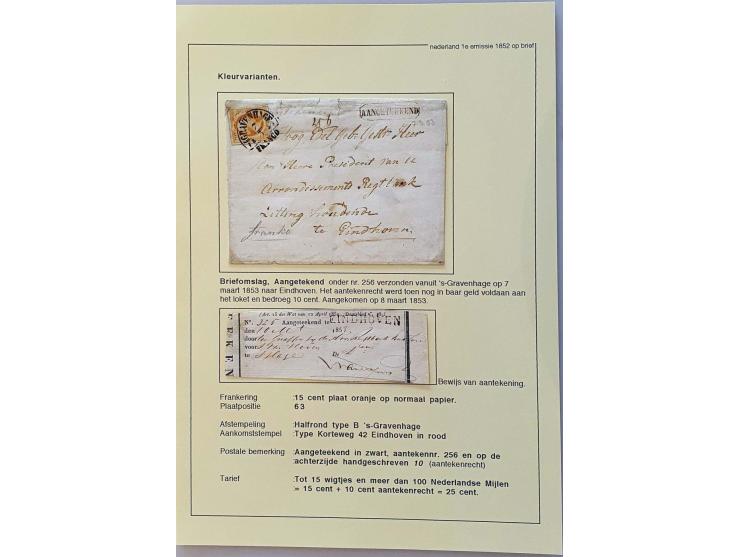 nederland 1e emissie 1852 op brief
Kleurvarianten.
FRANCO
AANGETEEKEND
Hoog Edel Gestr Heer
den Heere President van de
Arrondissements Regtbank
Zitting houdende
franko te Eindhoven.
Briefomslag, Aangetekend onder nr. 256 verzonden vanuit 's-Gravenhage op 7
maart 1853 naar Eindhoven. Het aantekenrecht werd toen nog in baar geld voldaan aan
het loket en bedroeg 10 cent. Aangekomen op 8 maart 1853.
N°. 325 Aangeteekend te EINDHOVEN
den
door
voor
te
Bewijs van aantekening.
Frankering :15 cent plaat oranje op normaal papier.
Plaatpositie 63
Afstempeling :Halfrond type B 's-Gravenhage
Aankomststempel :Type Korteweg 42 Eindhoven in rood
Postale bemerking :Aangeteekend in zwart, aantekennr. 256 en op de
:achterzijde handgeschreven 10 (aantekenrecht)
Tarief :Tot 15 wigtjes en meer dan 100 Nederlandse Mijlen
:= 15 cent + 10 cent aantekenrecht = 25 cent.